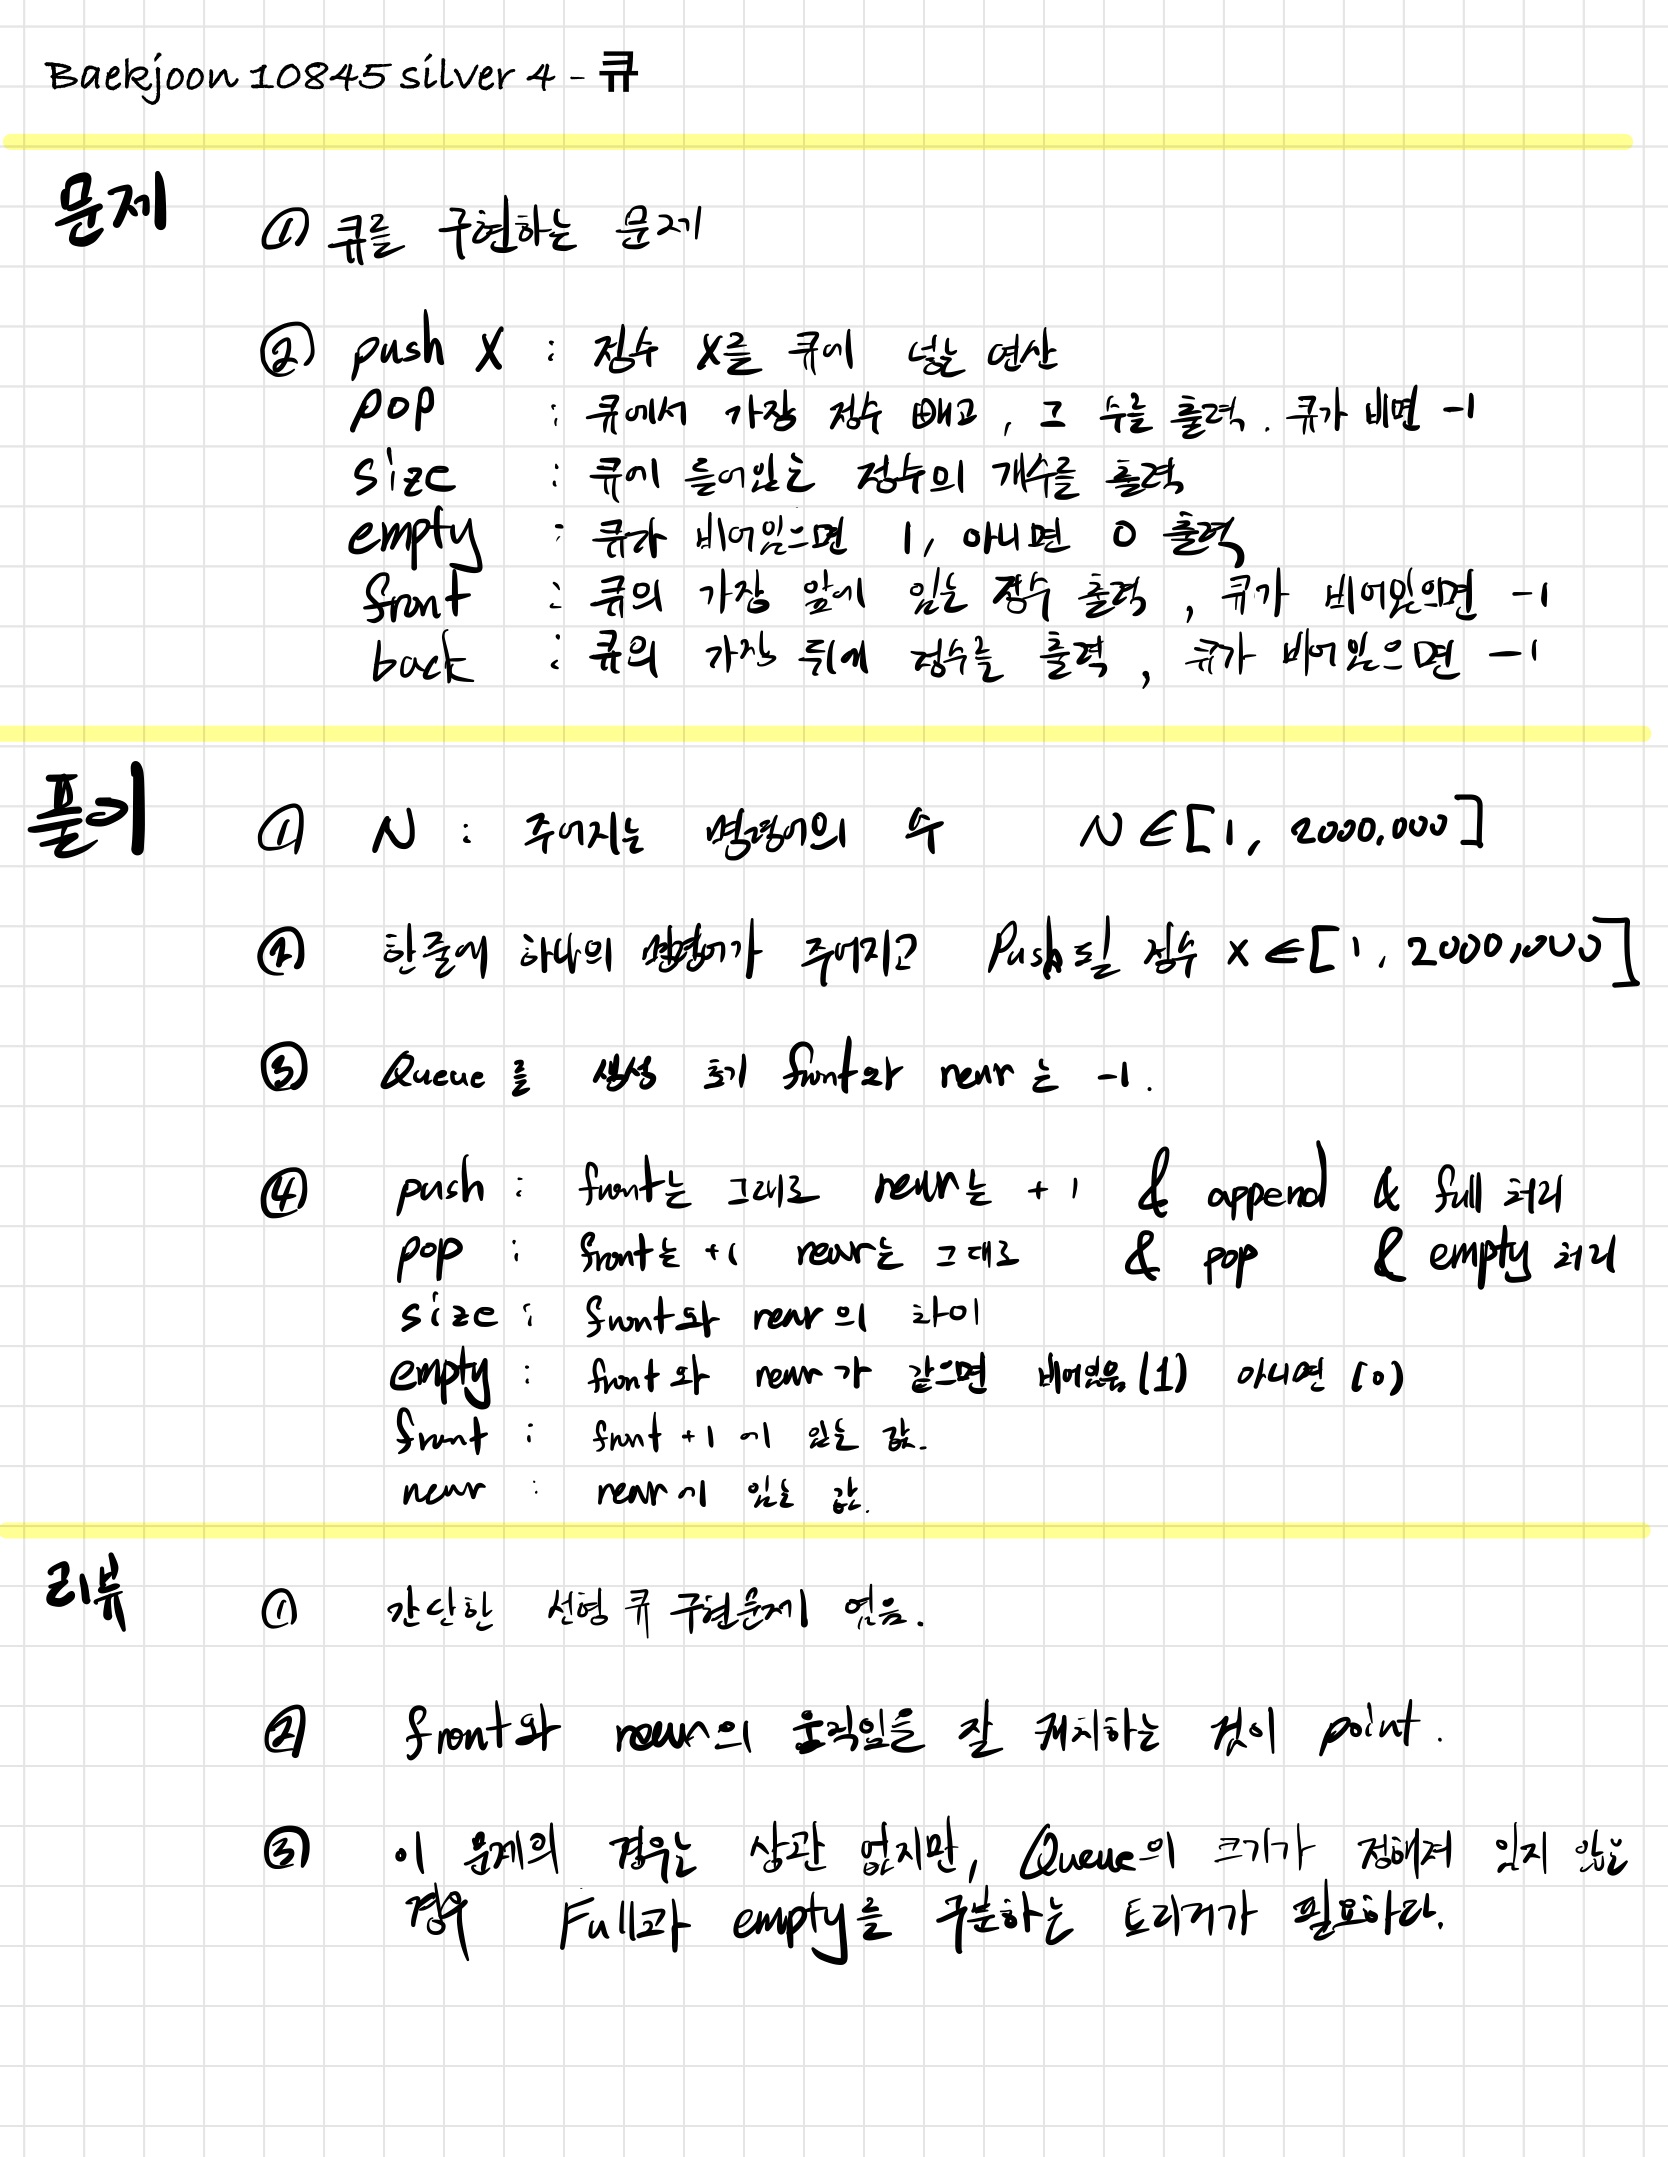 Baekjoon 10845 silver 4 - 큐
문제 ① 큐를 구현하는 문제
② push X : 정수 X를 큐에 넣는 연산
pop : 큐에서 가장 정수 빼고, 그 수를 출력. 큐가 비면 -1
size : 큐에 들어있는 정수의 개수를 출력
empty : 큐가 비어있으면 1, 아니면 0 출력
front : 큐의 가장 앞에 있는 정수 출력, 큐가 비어있의면 -1
back : 큐의 가장 뒤에 정수를 출력, 큐가 비어있으면 -1
풀이 ① N : 주어지는 명령어의 수 N ∈ [1, 2000,000]
② 한줄에 하나의 명령어가 주어지고 Push될 정수 x ∈ [1, 2000,000]
③ Queue를 생성 초기 front와 rear는 -1.
④ push : front는 그대로 rear는 +1 & append & full 처리
pop : front는 +1 rear는 그대로 & pop & empty 처리
size : front와 rear의 차이
empty : front와 rear가 같으면 비어있음(1) 아니면 (0)
front : front +1에 있는 값.
rear : rear에 있는 값.
리뷰 ① 간단한 선형 큐 구현문제 였음.
② front와 rear의 움직임을 잘 캐치하는 것이 point.
③ 이 문제의 경우는 상관 없지만, Queue의 크기가 정해져 있지 않은
경우 Full과 empty를 구분하는 트리거가 필요하다.